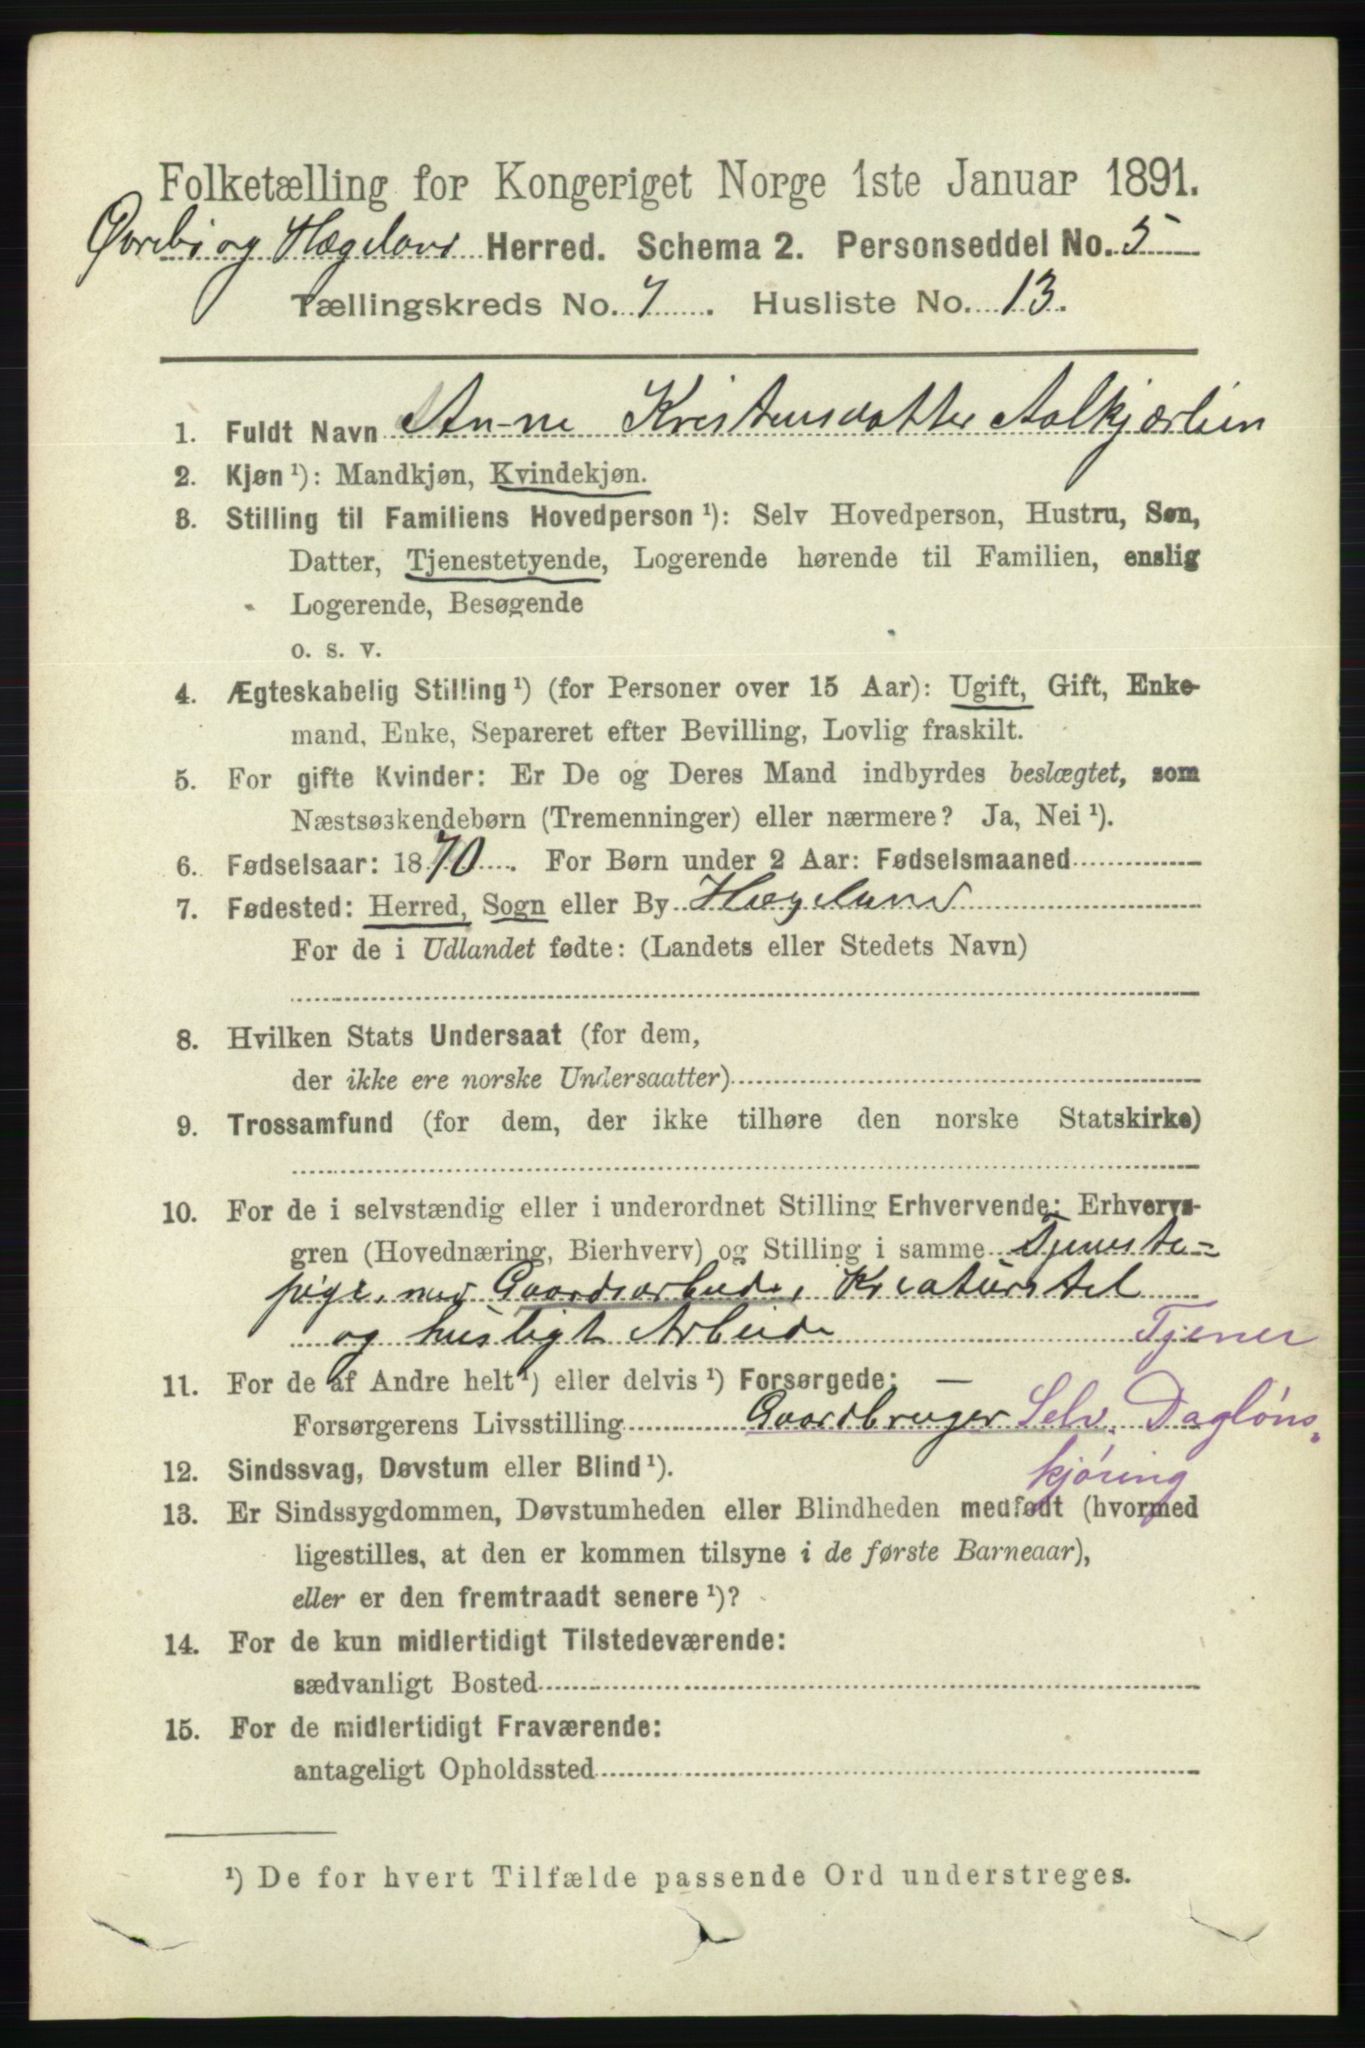 Folketælling for Kongeriget Norge 1ste Januar 1891.
Øvrebø og Hægeland Herred. Schema 2. Personseddel No. 5
Tællingskreds No. 7. Husliste No. 13.
1. Fuldt Navn Anne Kristensdatter Aalkjærlien
2. Kjøn ¹): Mandkjøn, Kvindekjøn.
3. Stilling til Familiens Hovedperson ¹): Selv Hovedperson, Hustru, Søn,
Datter, Tjenestetyende, Logerende hørende til Familien, enslig
Logerende, Besøgende
o. s. v.
4. Ægteskabelig Stilling ¹) (for Personer over 15 Aar): Ugift, Gift, Enke-
mand, Enke, Separeret efter Bevilling, Lovlig fraskilt.
5. For gifte Kvinder: Er De og Deres Mand indbyrdes beslægtet, som
Næstsøskendebørn (Tremenninger) eller nærmere? Ja, Nei ¹).
6. Fødselsaar: 1870. For Børn under 2 Aar: Fødselsmaaned
7. Fødested: Herred, Sogn eller By Hægeland
For de i Udlandet fødte: (Landets eller Stedets Navn)
8. Hvilken Stats Undersaat (for dem,
der ikke ere norske Undersaatter)
9. Trossamfund (for dem, der ikke tilhøre den norske Statskirke)
10. For de i selvstændig eller i underordnet Stilling Erhvervende: Erhvervs-
gren (Hovednæring, Bierhverv) og Stilling i samme Tjeneste-
pige, med Gaardsarbeide, Kreaturstel
og husligt Arbeide Tjener
11. For de af Andre helt ¹) eller delvis ¹) Forsørgede: —
Forsørgerens Livsstilling Gaardbruger Selv. Dagløns-
kjøring
12. Sindssvag, Døvstum eller Blind ¹).
13. Er Sindssygdommen, Døvstumheden eller Blindheden medfødt (hvormed
ligestilles, at den er kommen tilsyne i de første Barneaar),
eller er den fremtraadt senere ¹)?
14. For de kun midlertidigt Tilstedeværende:
sædvanligt Bosted
15. For de midlertidigt Fraværende:
antageligt Opholdssted
¹) De for hvert Tilfælde passende Ord understreges.